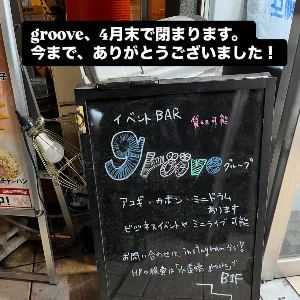 groove、4月末で閉まります。
今まで、ありがとうございました！
イベントBAR
貸切可能
groove
グルーブ
アコギ・カホン・ミニドラム
あります
ビジネスイベントやミニライブ可能
お問い合わせは、instagramから!
HPの検索は
B1F